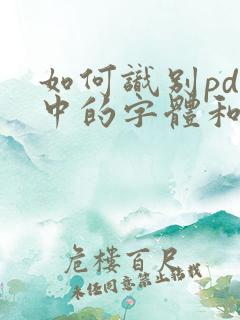 如何識别pd
中的字體和
危樓百尺
未经同意禁止转载